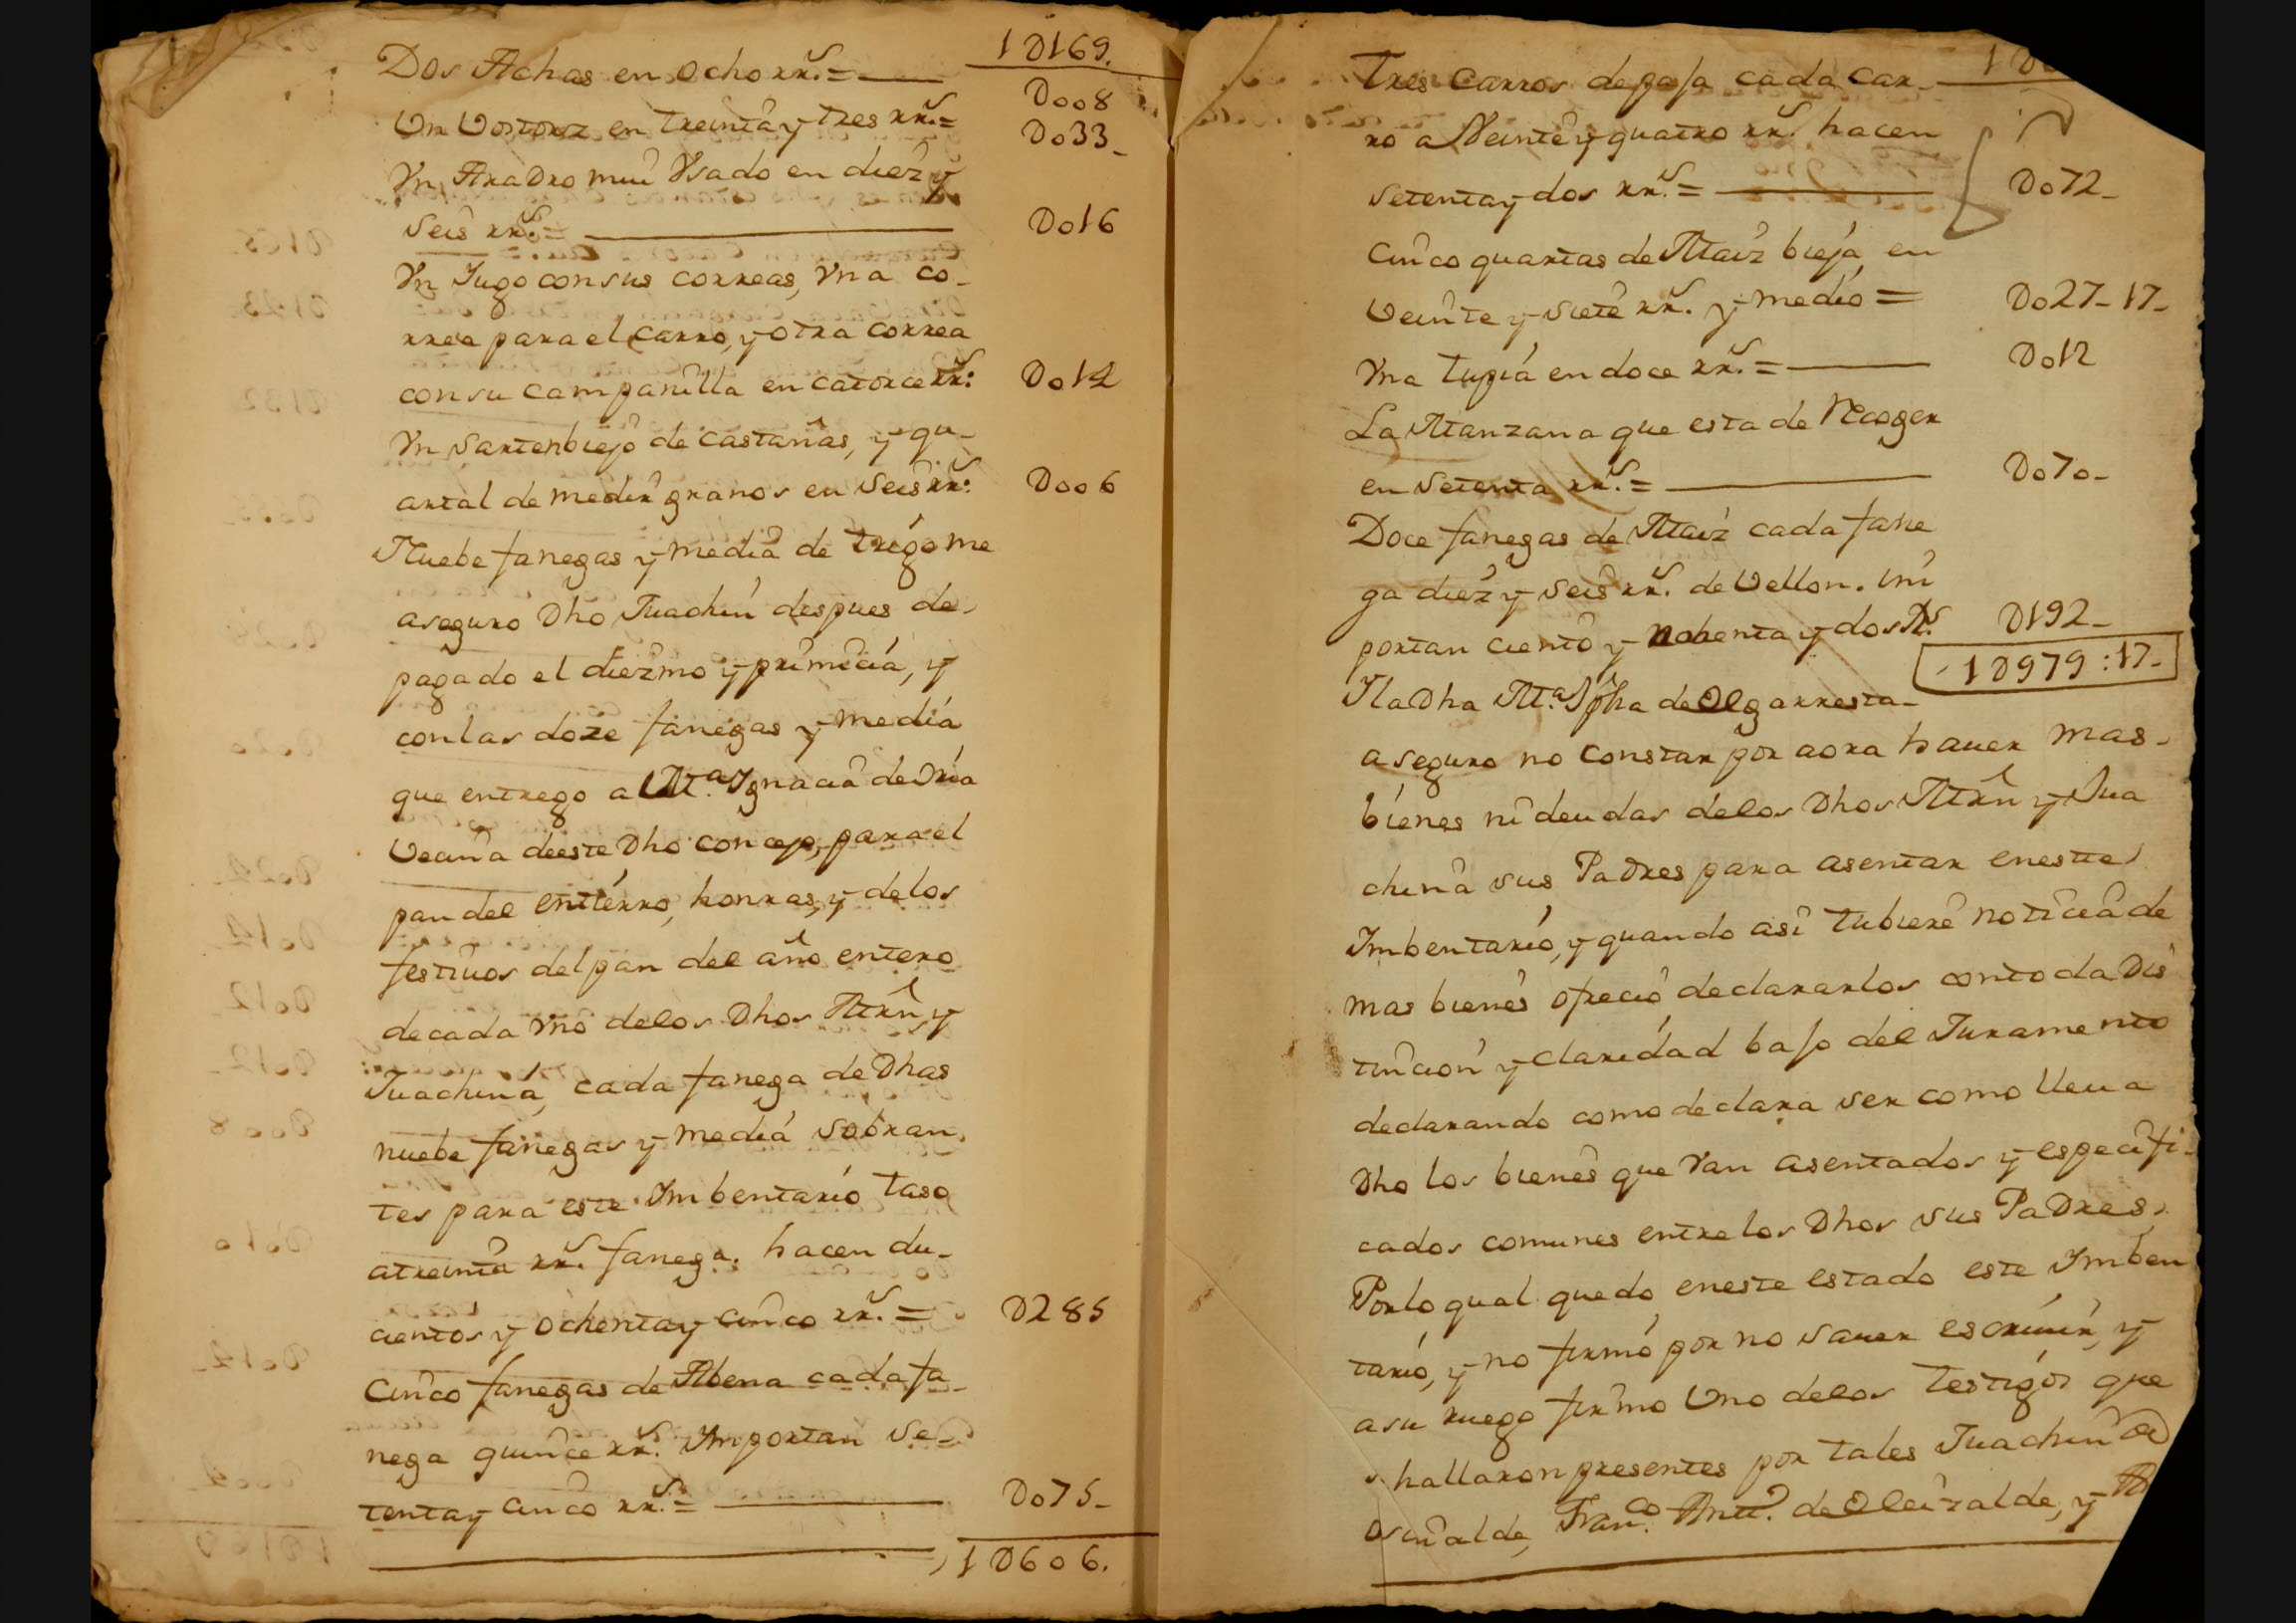 1 D169.
Dos Achas en ocho rrs. =
D008
Un Vostorz en treinta y tres rrs. =
D033_
Yn Aradro mui Usado en diez y
seis rrs. =
D016
Yn Jugo con sus correas, Yna co-
rrea para el carro, y otra correa
con su campanilla en catorce rrs:
D014
Yn sarten biejo de castañas, y qu-
artal de medir granos en seis rrs:
D006
Nuebe fanegas y media de trigo me
aseguro Dho Juachin despues de
pagado el diezmo y primicia, y
con las doze fanegas y media
que entrego a Ma. Ygnacia de Oria
Vecina de este Dho concejo, para el
pan del entierro, honras, y de los
festivos del pan del año entero
de cada Yno de los Dhos Mrn y
Juachina, cada fanega de Dhas
nuebe fanegas y media sobran
tes para este Ymbentario taso
a treinta rrs. fanega. hacen du-
cientos y ochenta y cinco rrs. =
D285
Cinco fanegas de Abena cada fa-
nega quince rrs. Ymportan se-
tenta y cinco rrs. =
D075_
1 D606.
Tres Carros de paja cada car-
ro a Veinte y quatro rrs. hacen
setenta y dos rrs. =
D072_
Cinco quartas de Maiz bieja en
Veinte y siete rrs. y medio =
D027_17_
Yna tupia en doce rrs. =
D012
La Manzana que esta de Recoger
en setenta rrs. =
D070_
Doce fanegas de Maiz cada fane
ga diez y seis rrs. de Vellon. im
portan ciento y nobenta y dos Rs.
D192_
1 D979:17_
Y la Dha Ma. Jpha de Olgarresta
aseguro no constar por aora hauer mas
bienes ni deudas de los Dhos Mrn y Jua
china sus Padres para asentar en este
Ymbentario, y quando asi tubiere noticia de
mas bienes ofrecio declararlos con toda Dis
tincion y claridad bajo del Juramento
declarando como declara ser como lleua
Dho los bienes que Van asentados y especifi-
cados comunes entre los Dhos sus Padres,
Por lo qual quedo en este estado este Ymben
tario, y no firmó por no sauer escriuir, y
a su ruego firmo Uno de los testigos que
s. hallaron presentes por tales Juachin de
Osinalde, Franco. Antto. de Oleizalde, y